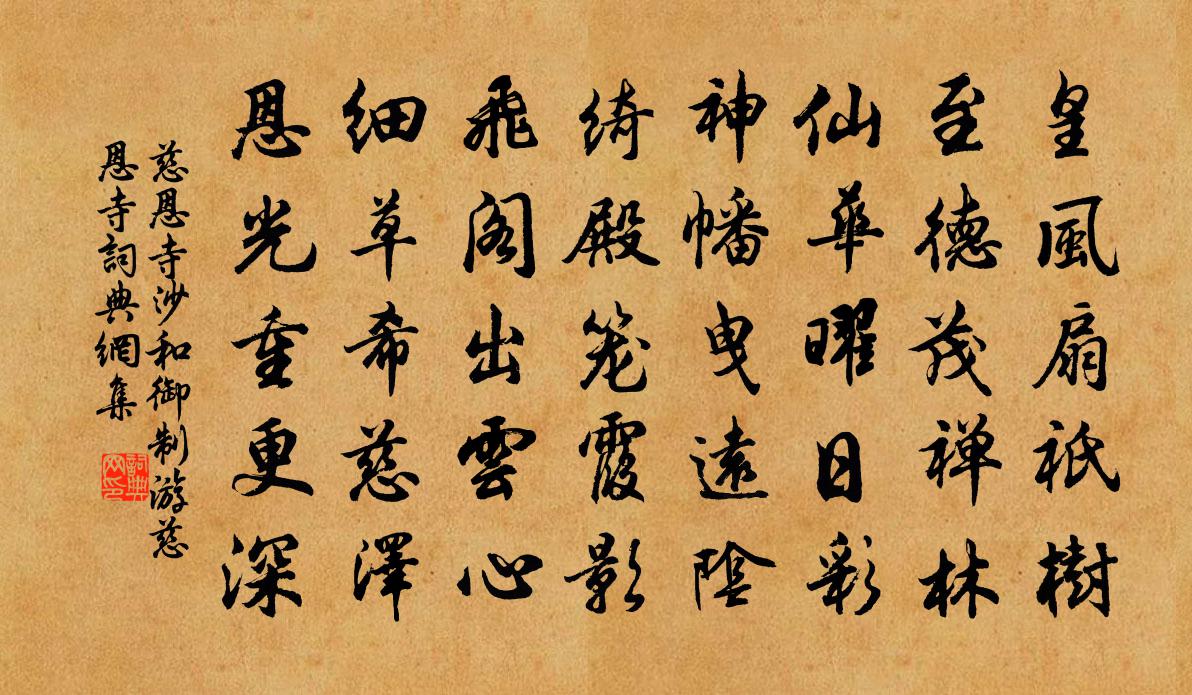 皇風扇祇樹
至德茂禅林
仙華曜日彩
神幡曳遠陰
綺殿笼霞影
飛閣出雲心
細草希慈澤
恩光重更深
慈恩寺沙和御制游慈
恩寺詞典網集
詞典网印